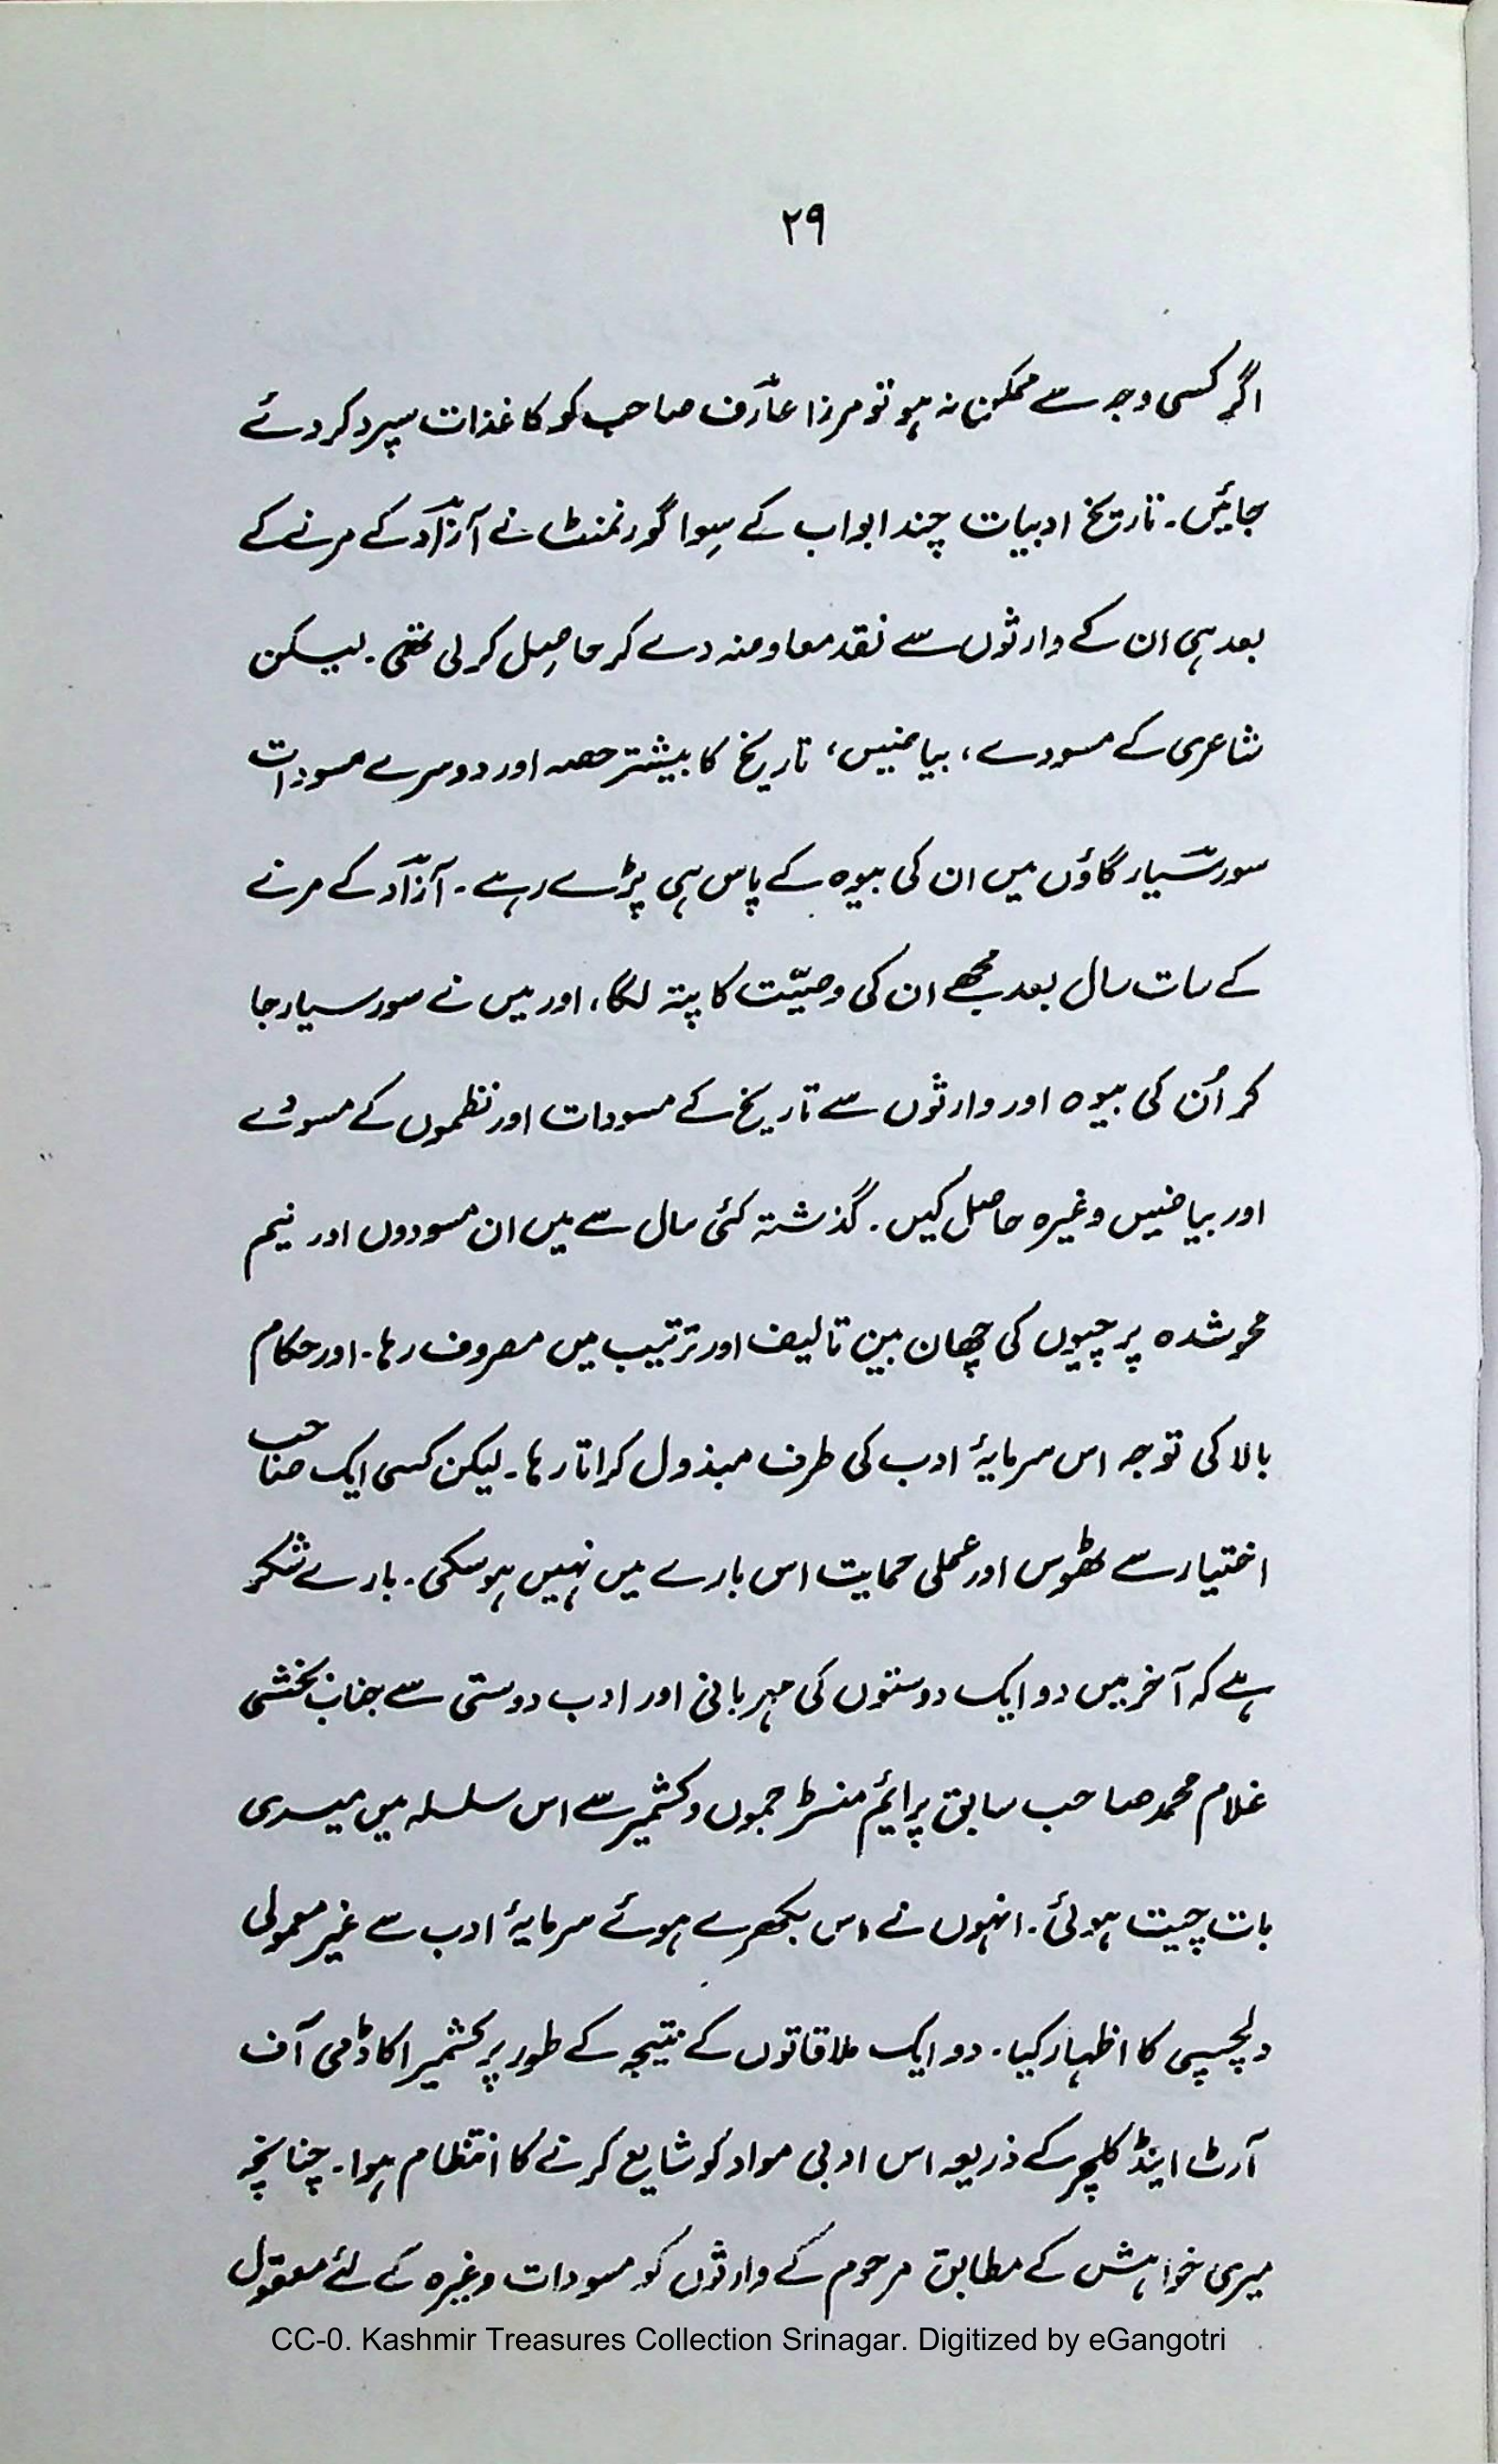 ۲۹
اگر کسی وجہ سے ممکن نہ ہو تو مرزا عارؔف صاحب کو کاغذات سپرد کر دئے
جائیں۔ تاریخ ادبیات چند ابواب کے سِوا گورنمنٹ نے آزاؔد کے مرنے کے
بعد ہی ان کے وارثوں سے نقد معاوضہ دے کر حاصِل کر لی تھی۔ لیکن
شاعری کے مسودے، بیاضیں، تاریخ کا بیشتر حصہ اور دوسرے مسودات
سورسؔیار گاؤں میں ان کی بیوہ کے پاس ہی پڑے رہے۔ آزاؔد کے مرنے
کے سات سال بعد مجھے ان کی وصیّت کا پتہ لگا، اور میں نے سورسیار جا
کر اُن کی بیوہ اور وارثوں سے تاریخ کے مسودات اور نظموں کے مسودے
اور بیاضیں وغیرہ حاصِل کیں۔ گذشتہ کئی سال سے میں ان مسودوں اور نیم
محو شدہ پرچیوں کی چھان بین تالیف اور ترتیب میں مصروف رہا۔ اور حکام
بالا کی توجہ اس سرمایۂ ادب کی طرف مبذول کراتا رہا۔ لیکن کسی ایک صاحب
اختیار سے ٹھوس اور عملی حمایت اس بارے میں نہیں ہو سکی۔ بارے شکر
ہے کہ آخر میں دو ایک دوستوں کی مہربانی اور ادب دوستی سے جناب بخشی
غلام محمد صاحب سابق پرائیم منسٹر جموں و کشمیر سے اس سلسلہ میں میری
بات چیت ہوئی۔ انہوں نے اس بکھرے ہوئے سرمایۂ ادب سے غیر معمولی
دلچسپی کا اظہار کیا۔ دو ایک ملاقاتوں کے نتیجہ کے طور پر کشمیر اکاڈمی آف
آرٹ اینڈ کلچر کے ذریعہ اس ادبی مواد کو شایع کرنے کا انتظام ہوا۔ چنانچہ
میری خواہش کے مطابق مرحوم کے وارثوں کو مسودات وغیرہ کے لئے معقول
CC-0. Kashmir Treasures Collection Srinagar. Digitized by eGangotri